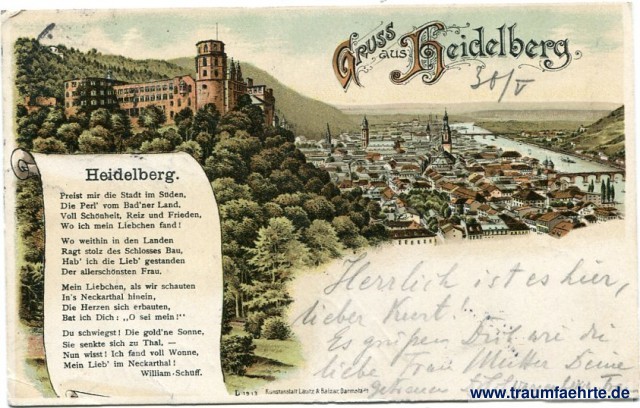 Gruss
aus
Heidelberg.
30/V
Heidelberg.
Preist mir die Stadt im Süden,
Die Perl' vom Bad'ner Land,
Voll Schönheit, Reiz und Frieden,
Wo ich mein Liebchen fand!
Wo weithin in den Landen
Ragt stolz des Schlosses Bau,
Hab' ich die Lieb' gestanden
Der allerschönsten Frau.
Mein Liebchen, als wir schauten
In's Neckarthal hinein,
Die Herzen sich erbauten,
Bat ich Dich: „O sei mein!"
Du schwiegst! Die gold'ne Sonne,
Sie senkte sich zu Thal, —
Nun wisst! Ich fand voll Wonne,
Mein Lieb' im Neckarthal!
William-Schuff.
Herrlich ist es hier,
lieber Kurt!
Es grüßen Dich wie die
liebe Frau Mutter Deine
Kunstanstalt Lautz & Balzar Darmstadt
www.traumfaehrte.de